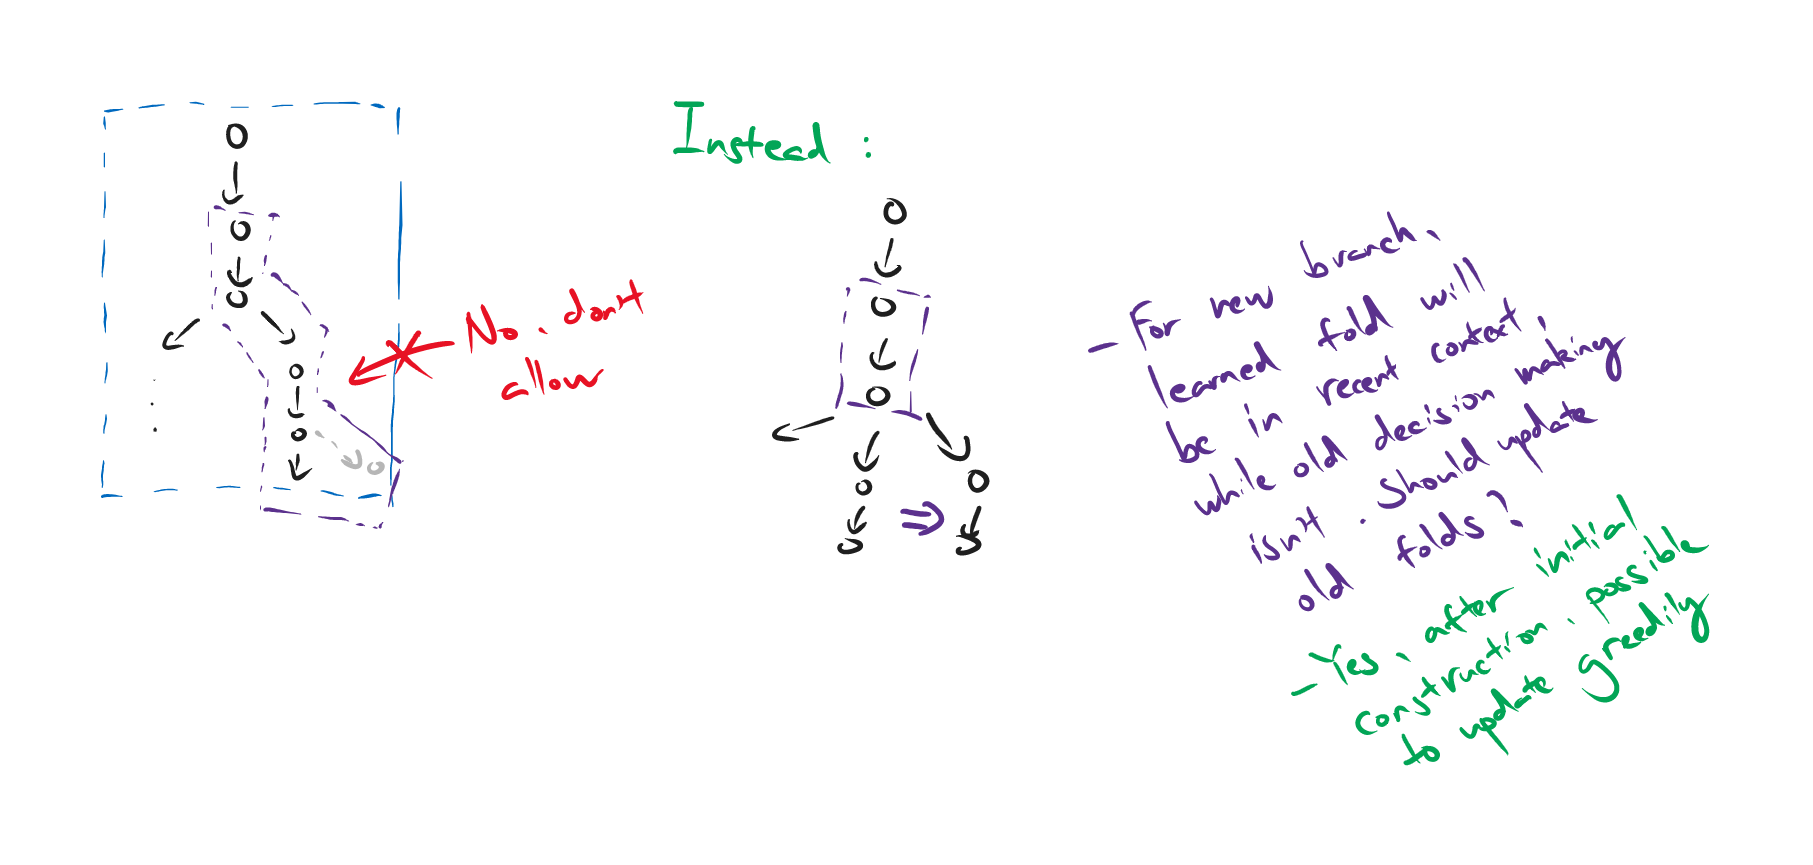 No, don't
allow
Instead :
- For new branch,
learned fold will
be in recent context,
while old decision making
isn't. Should update
old folds?
- Yes, after initial
construction, possible
to update greedily